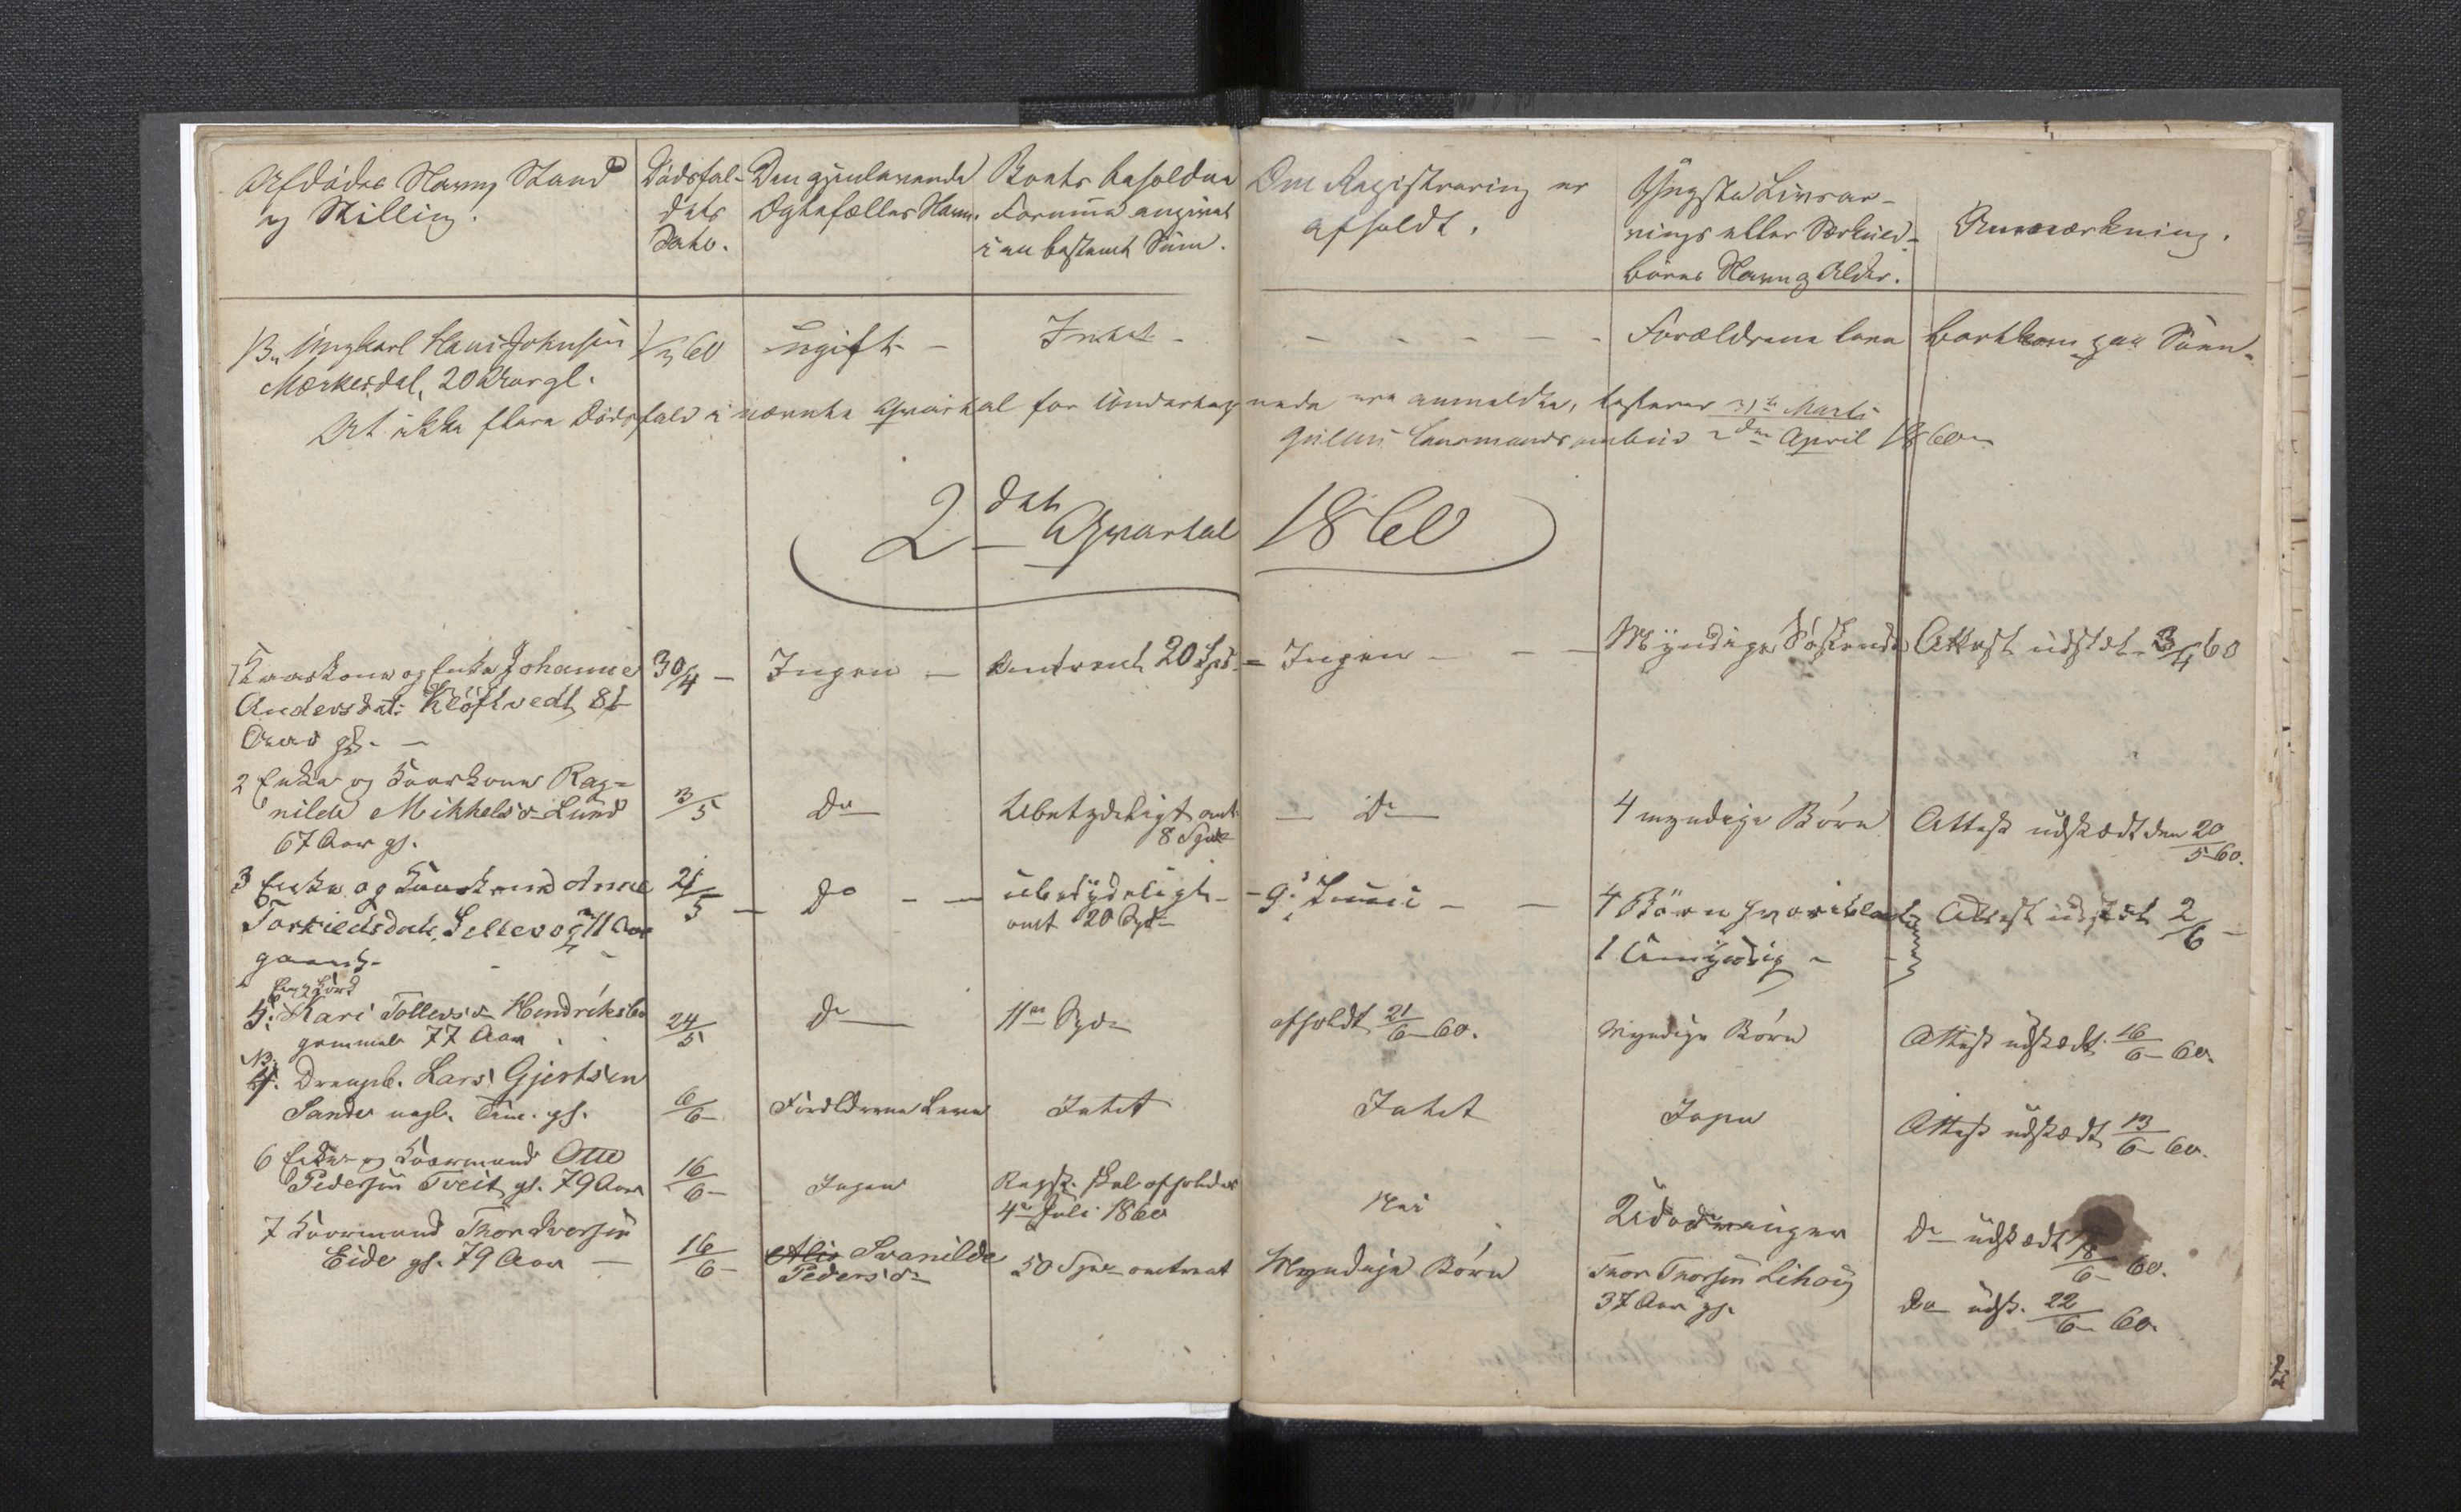 Afdødes Navn, Stand
og Stilling.
Dødsfal-
dets
Dato.
Den gjenlevende
Ægtefælles Navn.
Boets beholdne
Formue angivet
i en bestemt Sum.
Om Registrering er
afholdt.
Yngste Livsar-
nings eller Særkuld-
børns Navn og Alder.
Anmærkning.
13. Ungkarl Hans Johnsen
Mærkesdal, 20 Aar gl.
1/3 60
ugift -
Intet -
Forældrene leve
bortkom paa Søen.
At ikke flere Dødsfald i nævnte Qvartal for Undertegnede ere anmeldte, testerer 31te Marts
Lensmandsombud 2den April 1860
2det Qvartal 1860
1 Kaarkone og Enke Johanne
Andersdat: Kløftvedt 81
Aar gl. -
30/4 -
Ingen -
Omtrent 20 Spd. -
Ingen - - -
Myndige Søskende
Attest udstæt 3/4 60
2 Enke og Kaarkone Rag-
nilde Mikkelsd. Lund
67 Aar gl.
3/5
Do
Ubetydeligt omt.
8 Spd.
- Do
4 myndige Børn
Attest udstædt den 20/5 60.
3 Enke og Kaarkone Anne
Torkildsdat. Sellevog 71 Aar
gammel.
21/5 -
do - -
ubetydeligt -
omt 20 Spd -
- 9: Junii - -
4 Børn hvoriblant
1 Umyndig -
Attest udstæt 2/6 -
5. Kari Tollevsd. Hendriksbo
gammel 77 Aar
24/5
Do
11 Spd.
afholdt 21/6 60.
Myndige Børn
Attest udstædt 16/6 60.
NB
4. Drengeb. Lars Gjertsen
Sande gl.
6/6
Forældrene Leve
Intet
Intet
Ingen
Attest udstædt 13/6 60.
6 Enke og Kaarmand Otte
Pedersen Tveit gl. 79 Aar
16/6
Ingen
Regst. skal afholdes
4de Juli 1860
Nei
Udarvinger
Do udstædt 18/6 60.
7 Kaarmand Thor Iversen
Eide gl. 79 Aar -
16/6
Svanilde
Pedersd.
50 Spd. omtrent
Myndige Børn
Thor Thorsen Lihoug
37 Aar gl.
Do udst. 22/6 60.